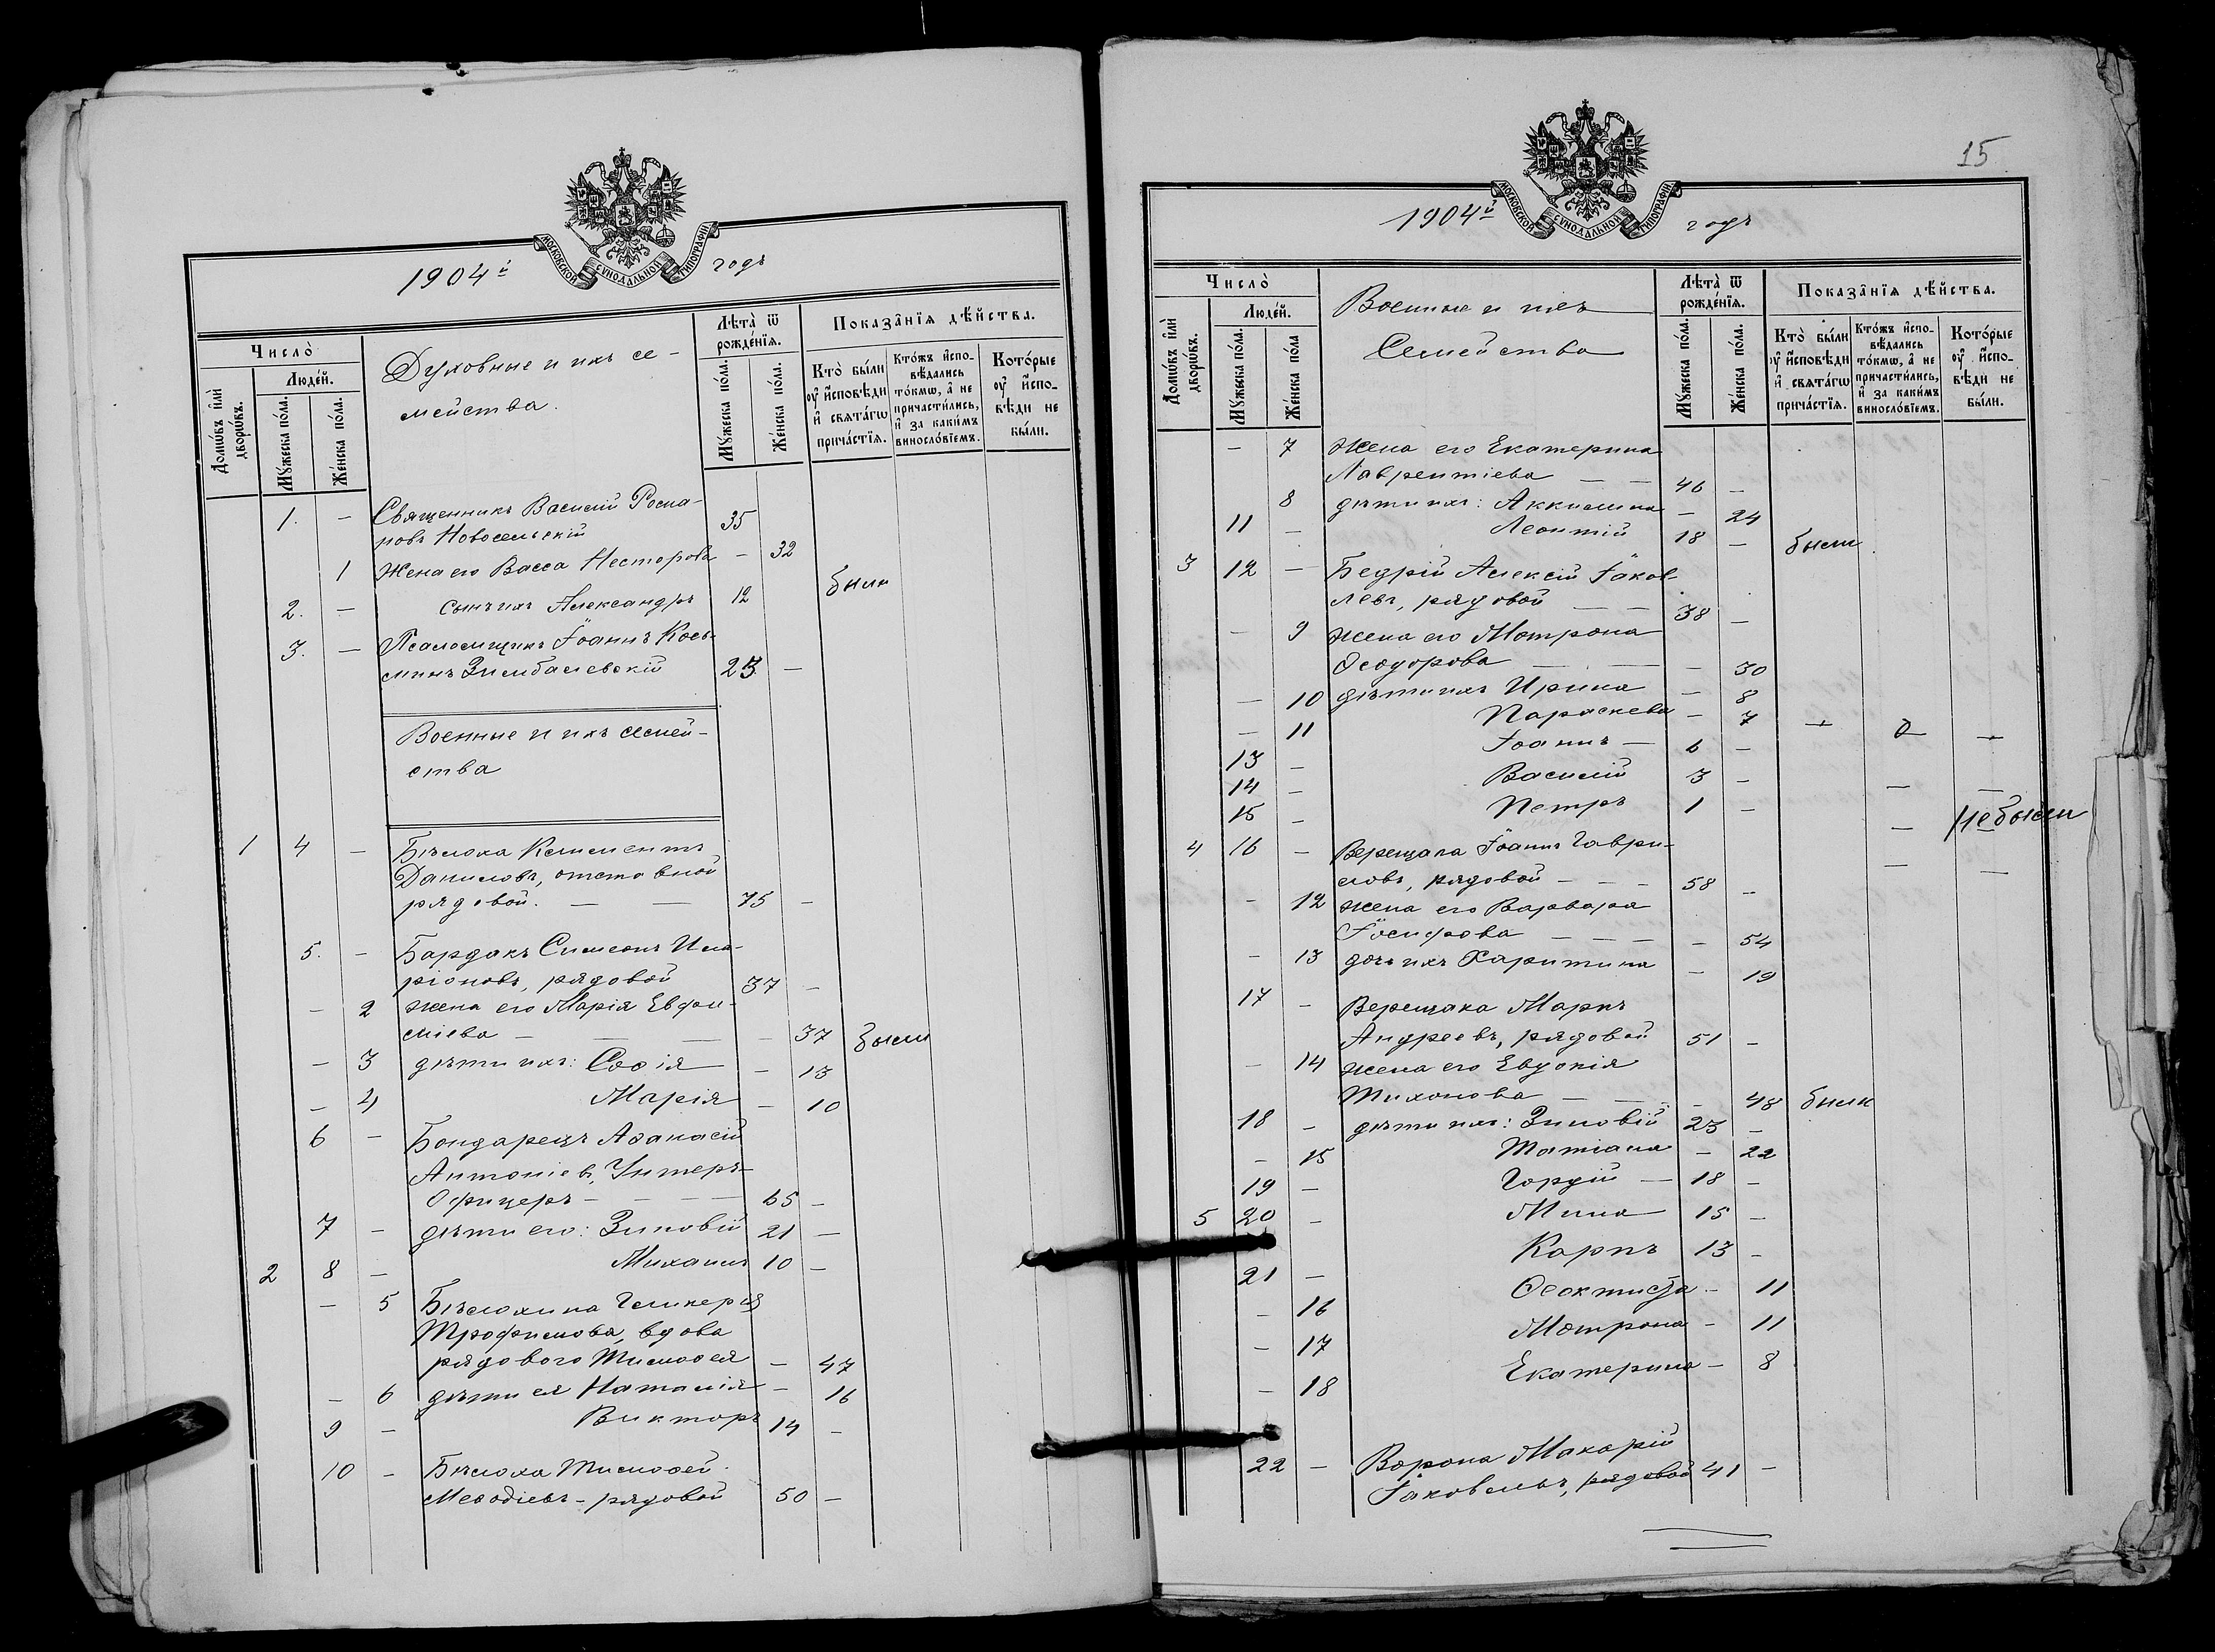 МОСКОВСКОЙ СѴНОДАЛЬНОЙ ТИПОГРАФІИ
1904й годъ
Число̀
Домѡ́въ и҆лѝ дворѡ́въ.
Люде́й.
Мꙋ́жеска по́ла.
Же́нска по́ла.
Духовные и ихъ се-
мейства.
Лѣта̀ ѿ рожде́нїѧ.
Мꙋ́жеска по́ла.
Же́нска по́ла.
Показа̂нїѧ дѣ́йства.
Кто̀ бы́ли ᲂу҆ и҆сповѣди и҆ свѧта́гѡ прича́стїѧ.
Кто́жъ и҆спо-вѣдались то́кмѡ, а҆ не причасти́лись, и҆ за каки́мъ винословїемъ.
Кото́рые ᲂу҆ и҆спо-вѣди не бы́ли.
1. — Священникъ Василій
ровъ Новосельскій 35
1 Жена его Васса Несторова — 32
2. — сынъ ихъ Александръ 12 были
3. — Псаломщикъ Іоаннъ Кось-
минъ Зимбалевскій 23 —
Военные и ихъ семей-
ства
1 4 — Бѣлоха Климентъ
Даниловъ, отставной
рядовой. — — 75 —
5. — Бардакъ Симеонъ Ила-
ріоновъ, рядовой 37 —
— 2 жена его Марія Евфи-
міева — — — — 37 были
— 3 дѣти ихъ: Софія — 13
— 4 Марія — 10
6 — Бондарецъ Аѳанасій
Антоніевъ, Унтеръ-
Офицеръ — — — — 65 —
7 — дѣти его: Зиновій 21 —
2 8 — Михаилъ 10 —
— 5 Бѣлохина Гликерія
Трофимова, вдова
рядового Тимоѳея — 47
— 6 дѣти ея Наталія — 16
9 — Викторъ 14 —
10 — Бѣлоха Тимоѳей
Меѳодіевъ - рядовой 50 —
15
МОСКОВСКОЙ СѴНОДАЛЬНОЙ ТИПОГРАФІИ
1904й годъ
Число̀
Домѡ́въ и҆лѝ дворѡ́въ.
Люде́й.
Мꙋ́жеска по́ла.
Же́нска по́ла
Военные и ихъ
Семейства
Лѣта̀ ѿ рожде́нїѧ.
Мꙋ́жеска по́ла.
Же́нска по́ла.
Показа̂нїѧ дѣ́йства.
Кто̀ бы́ли ᲂу҆ и҆сповѣди и҆ свѧта́гѡ прича́стїѧ.
Кто́жъ и҆спо-вѣдались то́кмѡ, а҆ не причасти́лись, и҆ за каки́мъ винословїемъ.
Кото́рые ᲂу҆ и҆спо-вѣди не бы́ли.
— 7 Жена его Екатерина
Лаврентіева — — 46 —
8 дѣти ихъ: Аккилина — 24
11 — Леонтій 18 — были
3 12 — Бедрій Алексій Іаков-
левъ, рядовой — — 38 —
— 9 жена его Мотрона
Ѳеодорова — — — 30
— 10 дѣти ихъ Ирина — 8
— 11 Параскева — 7
13 — Іоаннъ — 6 —
14 — Василій 3 —
15 — Петръ 1 — Не были
4 16 — Верещака Іоаннъ Гаври-
ловъ, рядовой — — — 58 —
— 12 жена его Варвара
Іосифова — — — — 54
— 13 дочь ихъ Харитина — 19
17 — Верещака Маркъ
Андреевъ, рядовой 51 —
— 14 жена его Евдокія
Тихонова — — — — 48 были
18 — дѣти ихъ: Зиновій 23 —
— 15 Татіана — 22
19 — Гордій — 18 —
5 20 — Мина 15 —
21 — Карпъ 13 —
— 16 Ѳеоктиста — 11
— 17 Мотрона — 11
— 18 Екатерина — 8
22 — Ворона Макарій
Іаковлевъ, рядовой 41 —